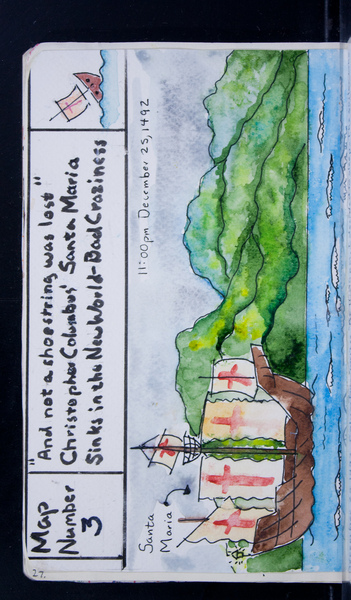 Map
Number
3
"And not a shoestring was lost"
Christopher Columbus' Santa Maria
Sinks in the New World-Dead Craziness
11:00pm December 25, 1492
Santa
Maria
27.